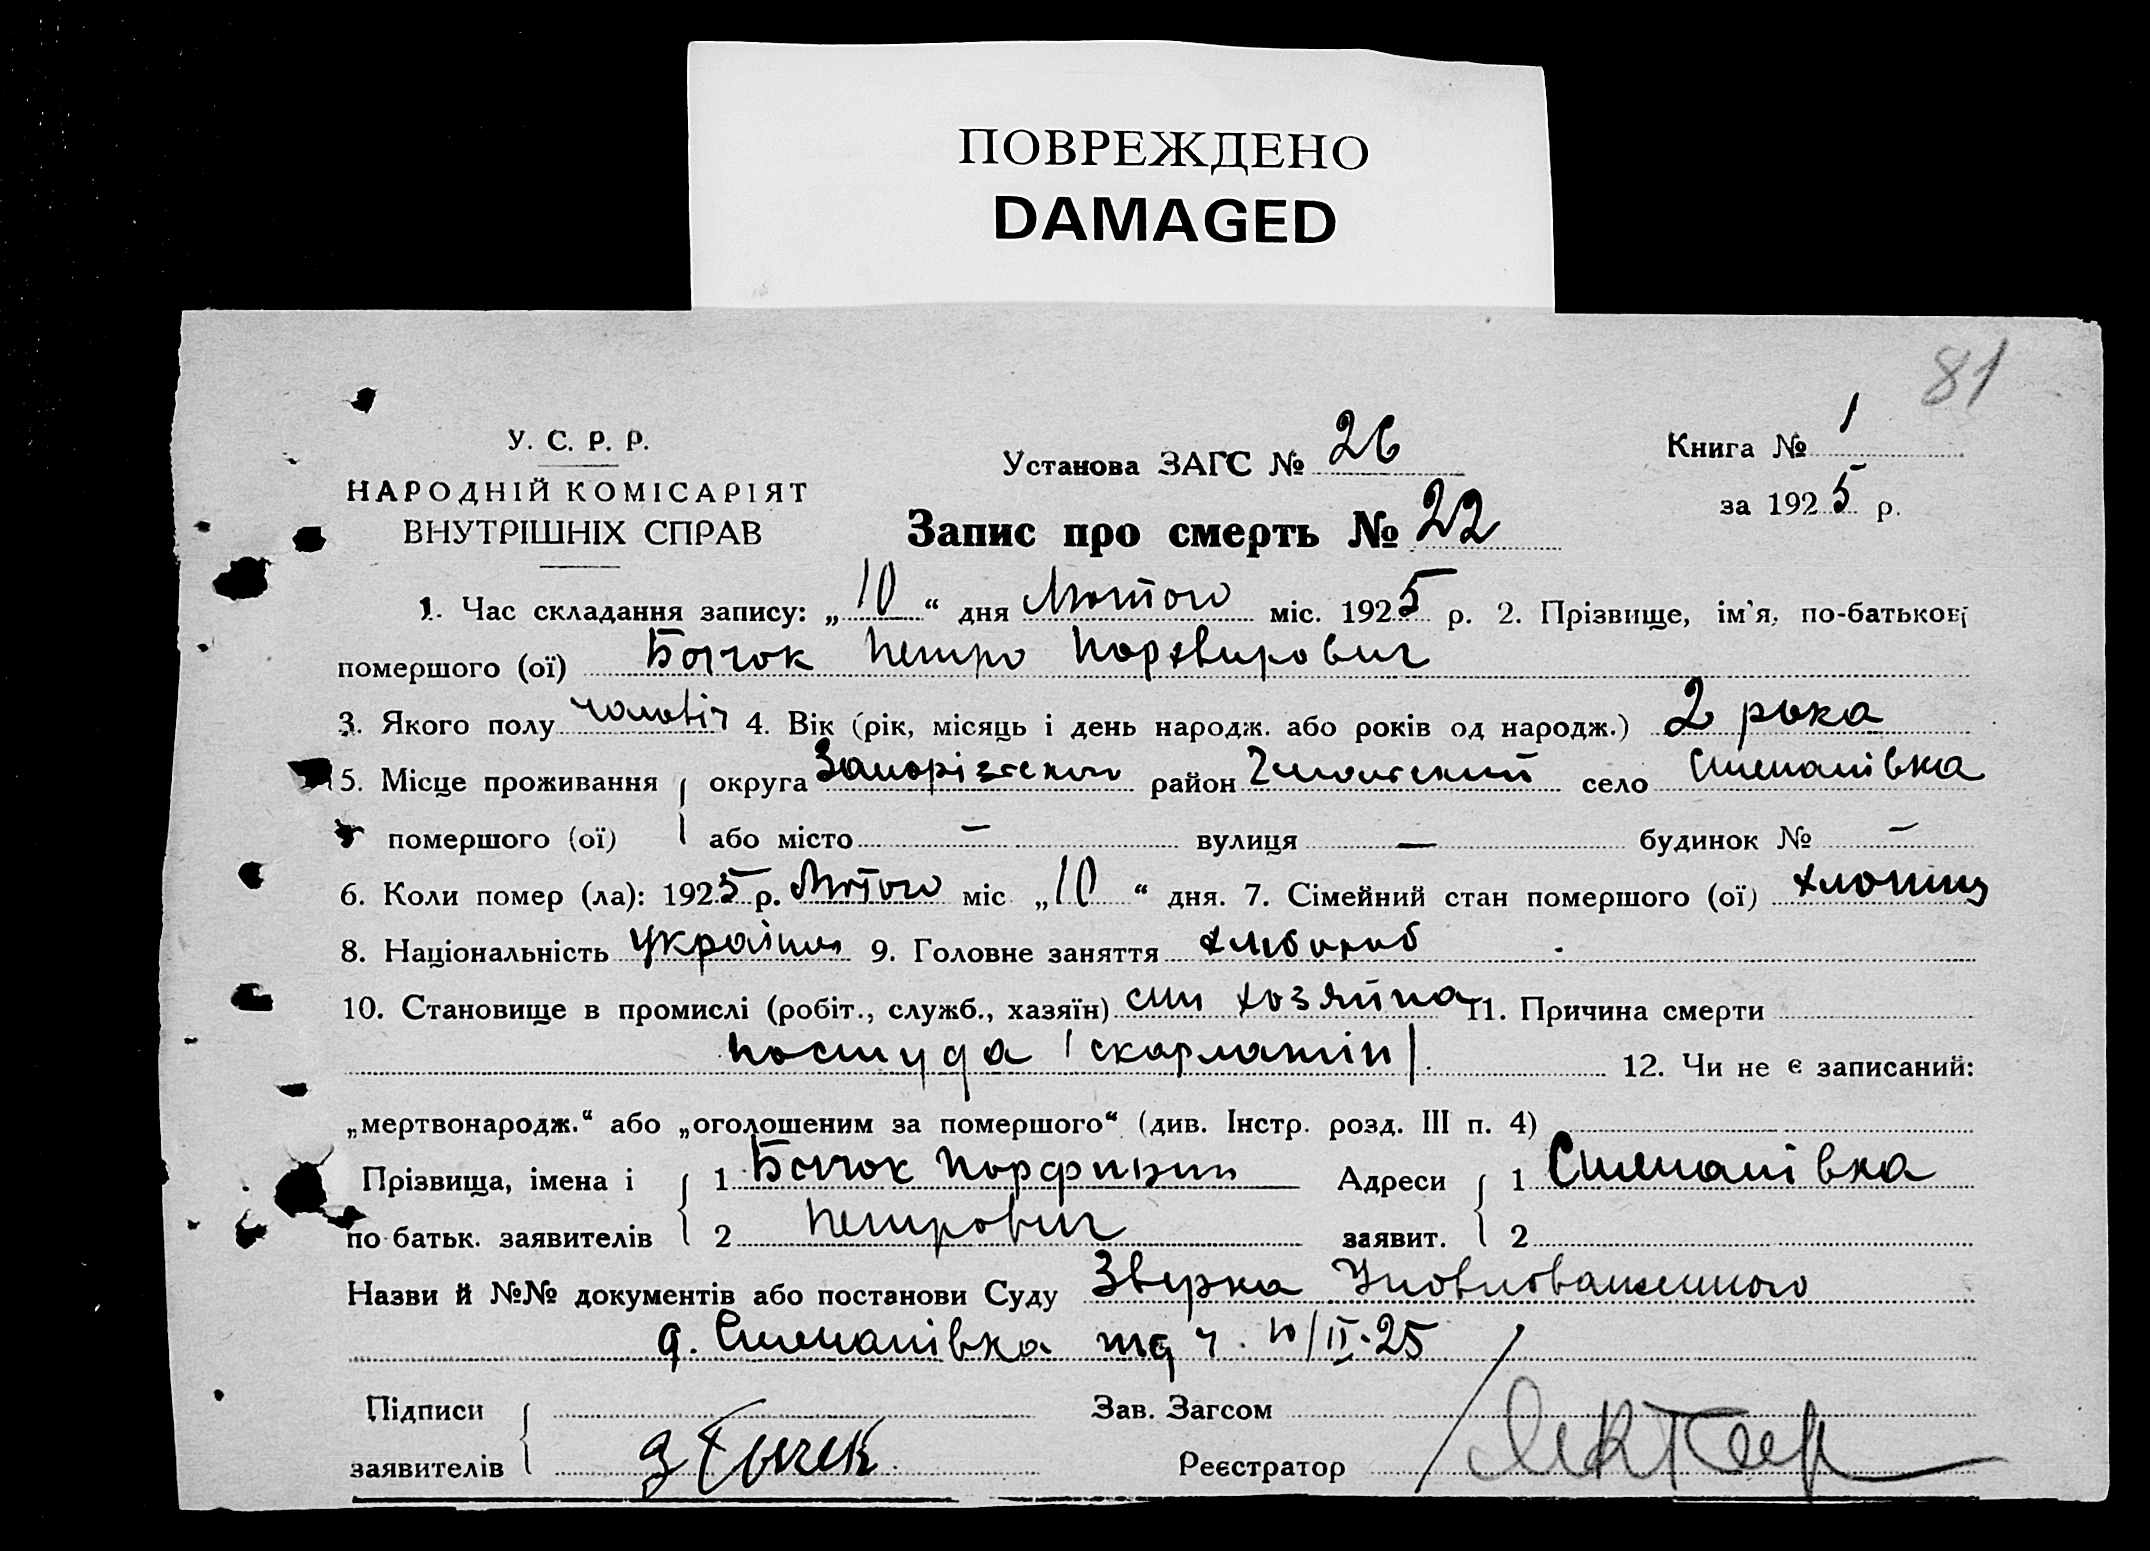 ПОВРЕЖДЕНО
DAMAGED
81
У. С. Р. Р.
НАРОДНІЙ КОМІСАРІЯТ
ВНУТРІШНІХ СПРАВ
Установа ЗАГС № 26
Книга № 1
за 1925 р.
Запис про смерть № 22
1. Час складання запису: „10“ дня Лютого міс. 1925 р. 2. Прізвище, ім'я, по-батькові
помершого (ої) Петро Порхвирович
3. Якого полу чоловіч 4. Вік (рік, місяць і день народж. або років од народж.) 2 рока
5. Місце проживання округа район село Степанівка
помершого (ої) або місто — вулиця — будинок № —
6. Коли помер (ла): 1925 р. Лютого міс „10“ дня. 7. Сімейний стан помершого (ої) хлопець
8. Національність 9. Головне заняття хлібороб
10. Становище в промислі (робіт., служб., хазяїн) син хозяйна 11. Причина смерти
простуда 12. Чи не є записаний:
„мертвонародж.“ або „оголошеним за помершого“ (див. Інстр. розд. III п. 4)
Прізвища, імена і 1 Адреси 1 Степанівка
по батьк. заявителів 2 Петрович заявит. 2
Назви й №№ документів або постанови Суду Уповноваженного
д. Степанівка 10/II-25
Підписи Зав. Загсом
заявителів Реєстратор